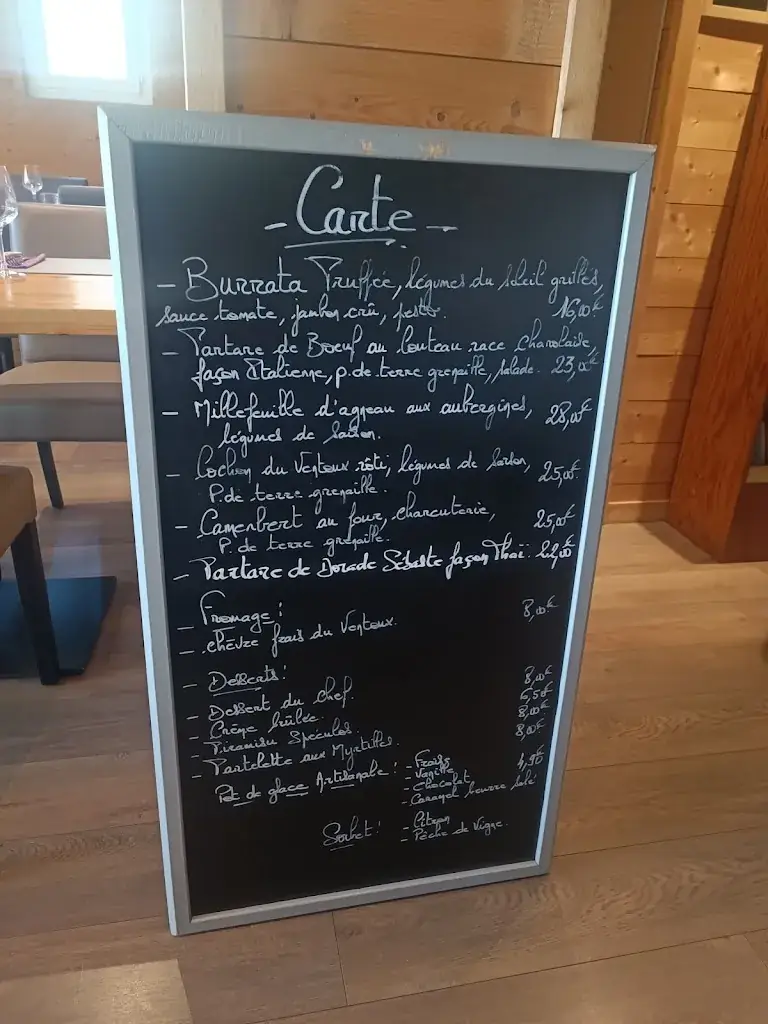 - Carte -
- Burrata Truffée, légumes du soleil grillés,
sauce tomate, jambon crû, pesto. 16,00€
- Tartare de Boeuf au couteau race charolaise,
façon Italienne, p. de terre grenaille, salade. 23,00€
- Millefeuille d'agneau aux aubergines, 28,00€
légumes de saison.
- Cochon du Ventoux rôti, légumes de saison, 25,00€
P. de terre grenaille.
- Camembert au four, charcuterie, 25,00€
P. de terre grenaille.
- Tartare de Dorade Sébaste façon Thaï. 22,00€
- Fromage :
- chèvre frais du Ventoux. 8,00€
- Desserts :
- Dessert du chef. 8,00€
- Crème brûlée. 6,50€
- Tiramisu Spéculos. 8,00€
- Tartelette aux Myrtilles. 8,00€
Pot de glace Artisanale : - Fraise 4,90€
- Vanille
- Chocolat
- Caramel beurre salé
Sorbet : - Citron
- Pêche de Vigne.